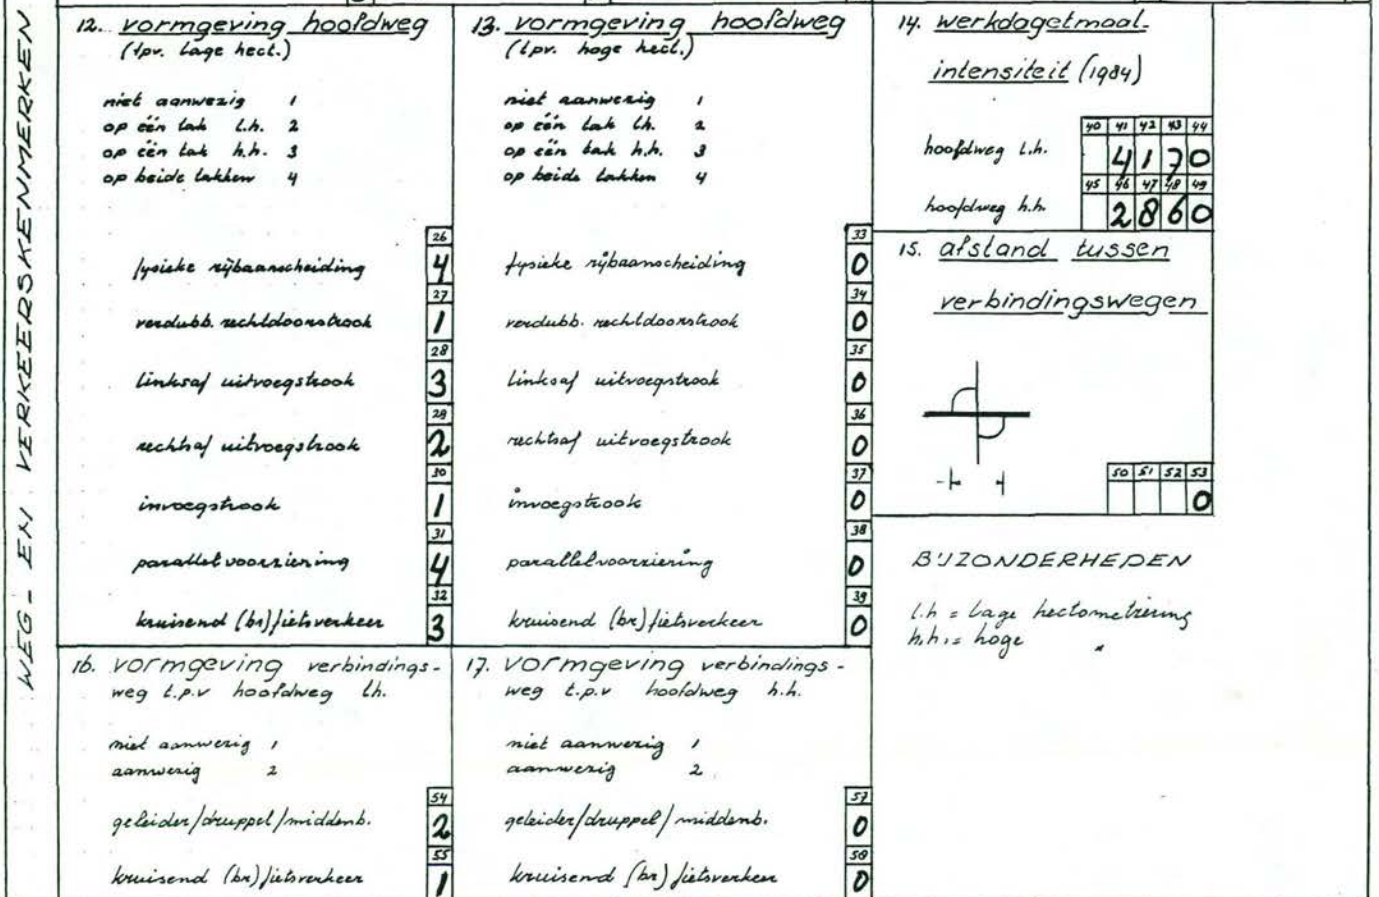 WEG- EN VERKEERSKENMERKEN
12. vormgeving hoofdweg
(tpv. lage hect.)
niet aanwezig 1
op één tak l.h. 2
op één tak h.h. 3
op beide takken 4
26
fysieke rijbaanscheiding 4
27
verdubb. rechtdoorstrook 1
28
linksaf uitvoegstrook 3
29
rechtsaf uitvoegstrook 2
30
invoegstrook 1
31
parallelvoorziening 4
32
kruisend (br)fietsverkeer 3
13. vormgeving hoofdweg
(tpv. hoge hect.)
niet aanwezig 1
op één tak l.h. 2
op één tak h.h. 3
op beide takken 4
33
fysieke rijbaanscheiding 0
34
verdubb. rechtdoorstrook 0
35
linksaf uitvoegstrook 0
36
rechtsaf uitvoegstrook 0
37
invoegstrook 0
38
parallelvoorziening 0
39
kruisend (br)fietsverkeer 0
14. werkdagetmaal-
intensiteit (1984)
40 41 42 43 44
hoofdweg l.h. 4170
45 46 47 48 49
hoofdweg h.h. 2860
15. afstand tussen
verbindingswegen
50 51 52 53
0
BIJZONDERHEDEN
l.h = lage hectometrering
h.h. = hoge "
16. vormgeving verbindings-
weg t.p.v hoofdweg l.h.
niet aanwezig 1
aanwezig 2
54
geleider/druppel/middenb. 2
55
kruisend (br)fietsverkeer 1
17. vormgeving verbindings-
weg t.p.v hoofdweg h.h.
niet aanwezig 1
aanwezig 2
57
geleider/druppel/middenb. 0
58
kruisend (br)fietsverkeer 0